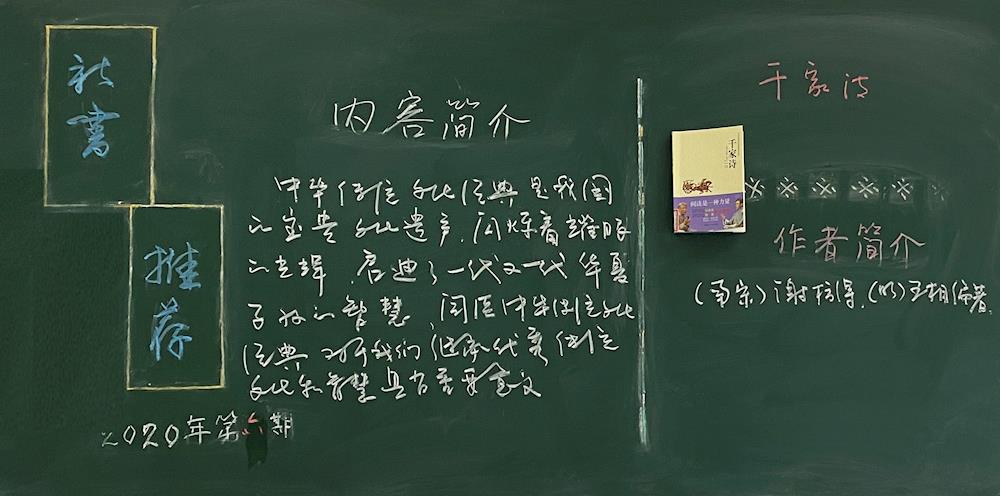 新书
推荐
2020年第六期
内容简介
中华传统文化经典是我国
的宝贵文化遗产,闪烁着耀眼
的光辉,启迪了一代又一代华夏
子孙的智慧,阅读中华传统文化
经典,对于我们继承优秀传统
文化和智慧具有重要意义
千家诗
千家诗
阅读是一种力量
作者简介
(南宋)谢枋得,(明)王相编著